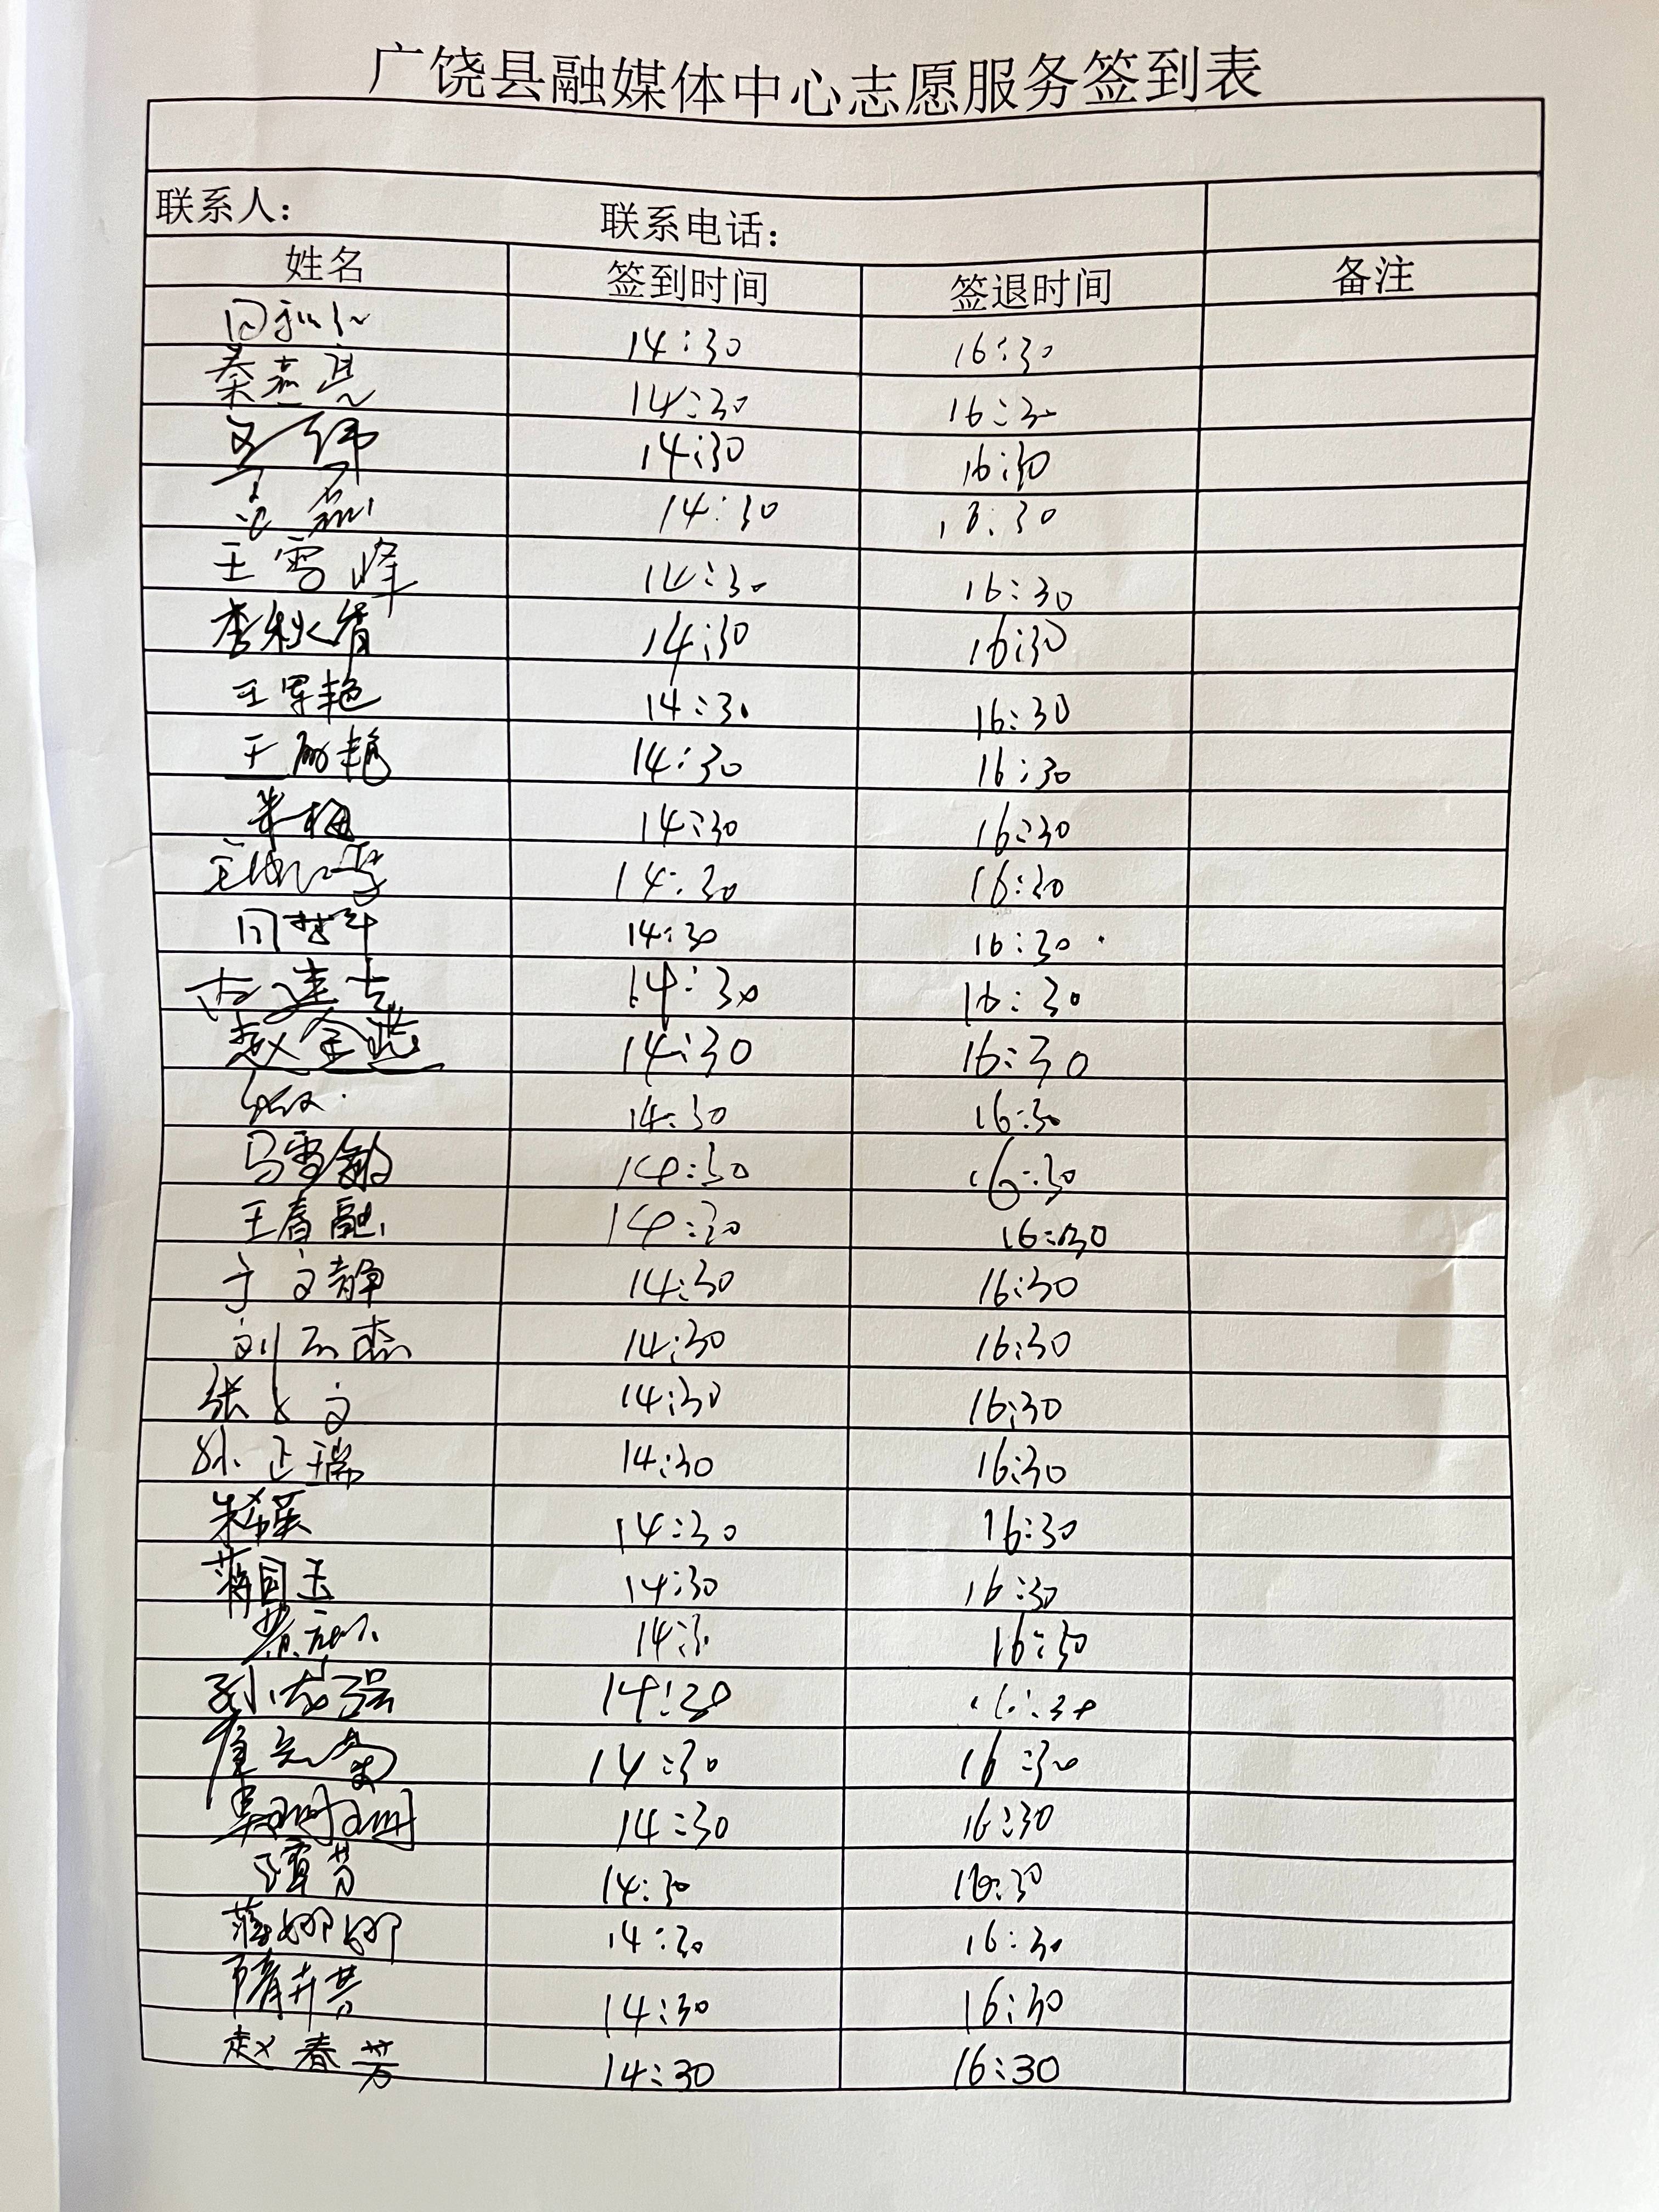 广饶县融媒体中心志愿服务签到表
联系人： 联系电话：
姓名 签到时间 签退时间 备注
14:30 16:30
秦燕亮 14:30 16:30
14:30 16:30
14:30
王雪峰 14:30 16:30
李秋霄 14:30 16:30
王军艳 14:30 16:30
王丽艳 14:30 16:30
朱梅 14:30 16:30
14:30 16:30
14:30 16:30
14:30 16:30
赵金燕 14:30 16:30
14:30 16:30
马雪敏 14:30 16:30
王春融 14:30 16:30
于文静 14:30 16:30
刘志杰 14:30 16:30
张 文 14:30 16:30
孙正瑞 14:30 16:30
朱希英 14:30 16:30
蒋同玉 14:30 16:30
14:30 16:30
孙茂强 14:30 16:30
崔元菊 14:30 16:30
14:30 16:30
14:30 16:30
蒋娜娜 14:30 16:30
隋卉芸 14:30 16:30
赵春芳 14:30 16:30